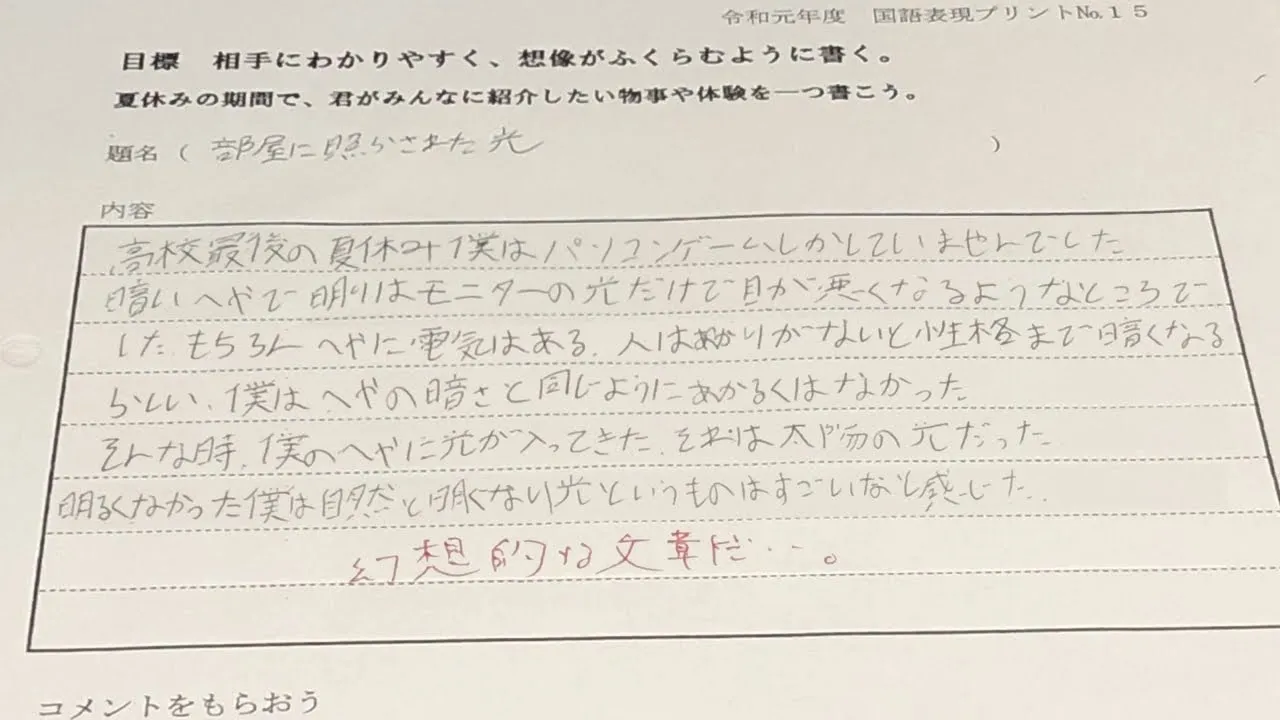 令和元年度 国語表現プリントNo.15
目標 相手にわかりやすく、想像がふくらむように書く。
夏休みの期間で、君がみんなに紹介したい物事や体験を一つ書こう。
題名（ 部屋に照らされた光 ）
内容
高校最後の夏休み僕はパソコンゲームしかしていませんでした
暗いへやで明りはモニターの光だけで目が悪くなるようなところで
した。もちろんへやに電気はある。人はあかりがないと性格まで暗くなる
らしい、僕はへやの暗さと同じようにあかるくはなかった
そんな時、僕のへやに光が入ってきた。それは太陽の光だった
明るくなかった僕は自然と明くなり光というものはすごいなと感じた。
幻想的な文章だ…。
コメントをもらおう